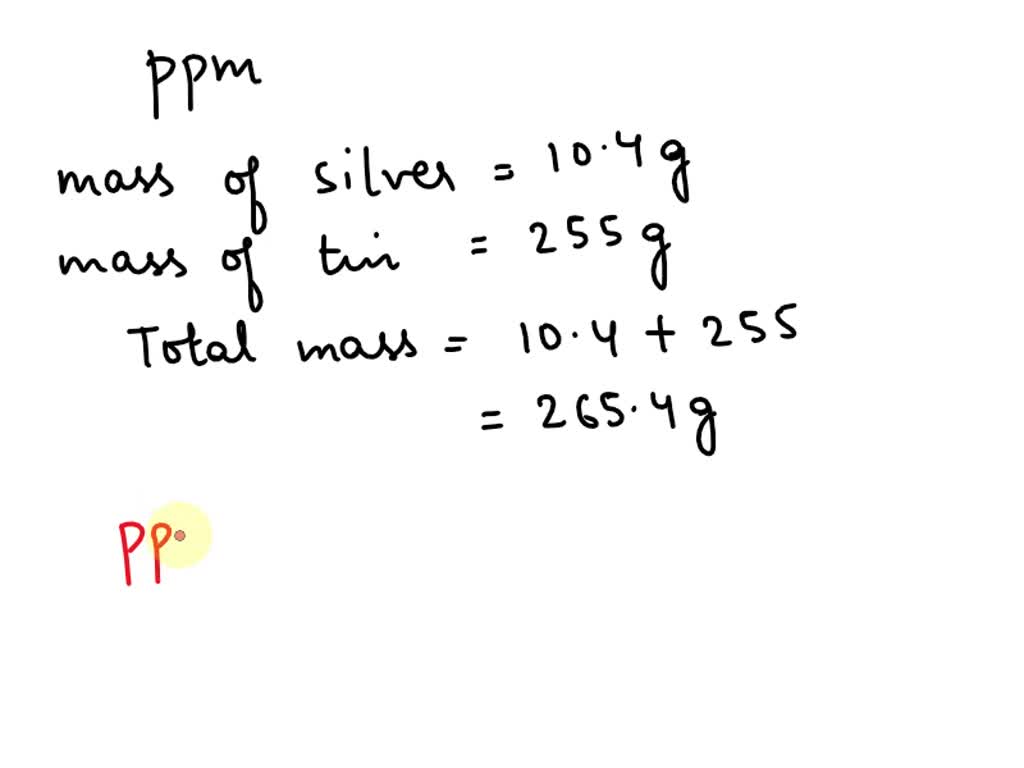 ppm
mass of silver = 10.4 g
mass of tin = 255 g
Total mass = 10.4 + 255
= 265.4 g
PP